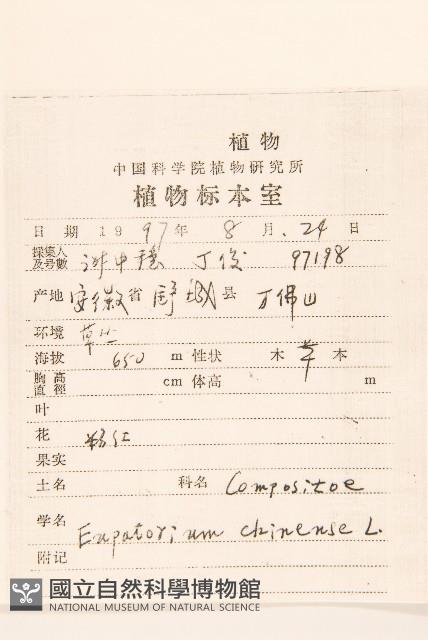 植物
中国科学院植物研究所
植物标本室
日期 1997年 8月 24日
採集人及号數 穆 丁俊 97198
产地 安徽省 舒城县 万佛山
环境 草丛
海拔 650 m 性状 木 草 本
胸高直徑 cm 体高 m
叶
花 粉红
果实
土名 科名 Compositae
学名 Eupatorium chinense L.
附记
國立自然科學博物館
NATIONAL MUSEUM OF NATURAL SCIENCE